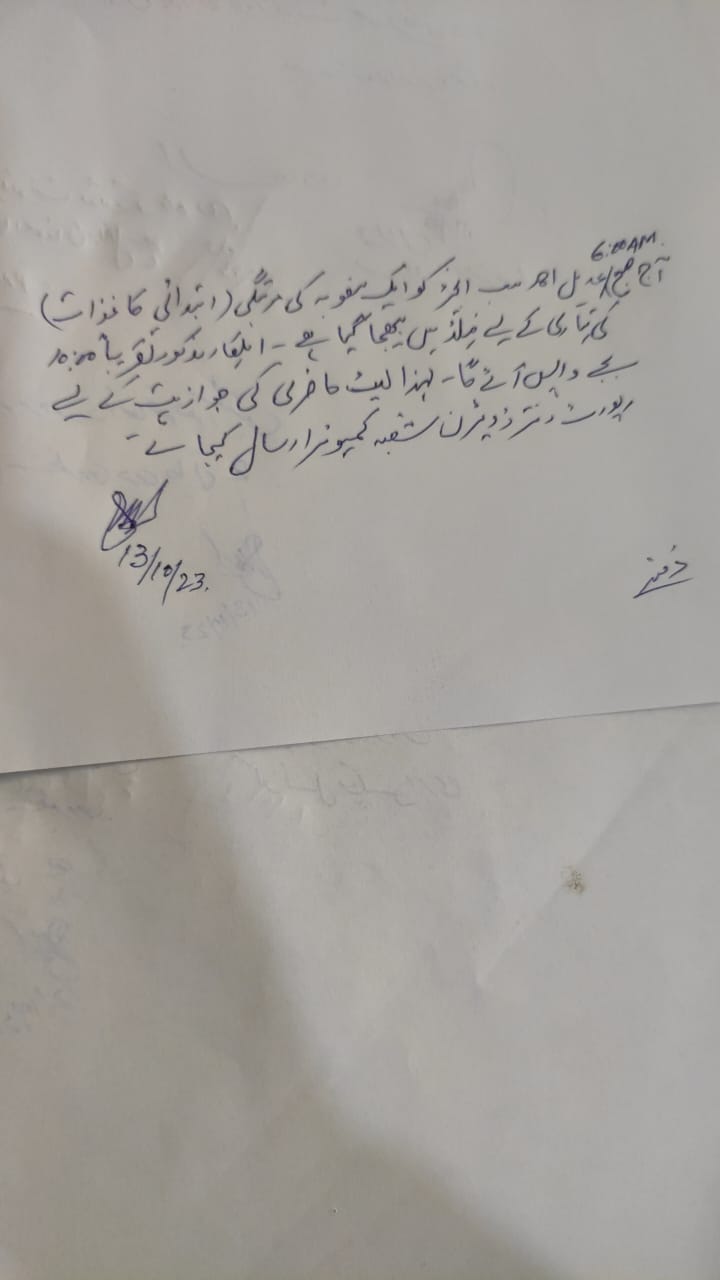 6:00 AM
آج صبح عدیل احمد سب انجینئر کو ایک منصوبہ کی مرتگی (ابتدائی کاغذات)
کی تیاری کے لیے فیلڈ میں بھیجا گیا ہے۔ اہلکار مذکور تقریباً 10:00
بجے واپس آئے گا۔ لہذا لیٹ حاضری کی جوازیت کے لیے
رپورٹ دفتر ڈویژن شعبہ کمپیوٹر ارسال کیجائے۔
13/10/23.
دفتر